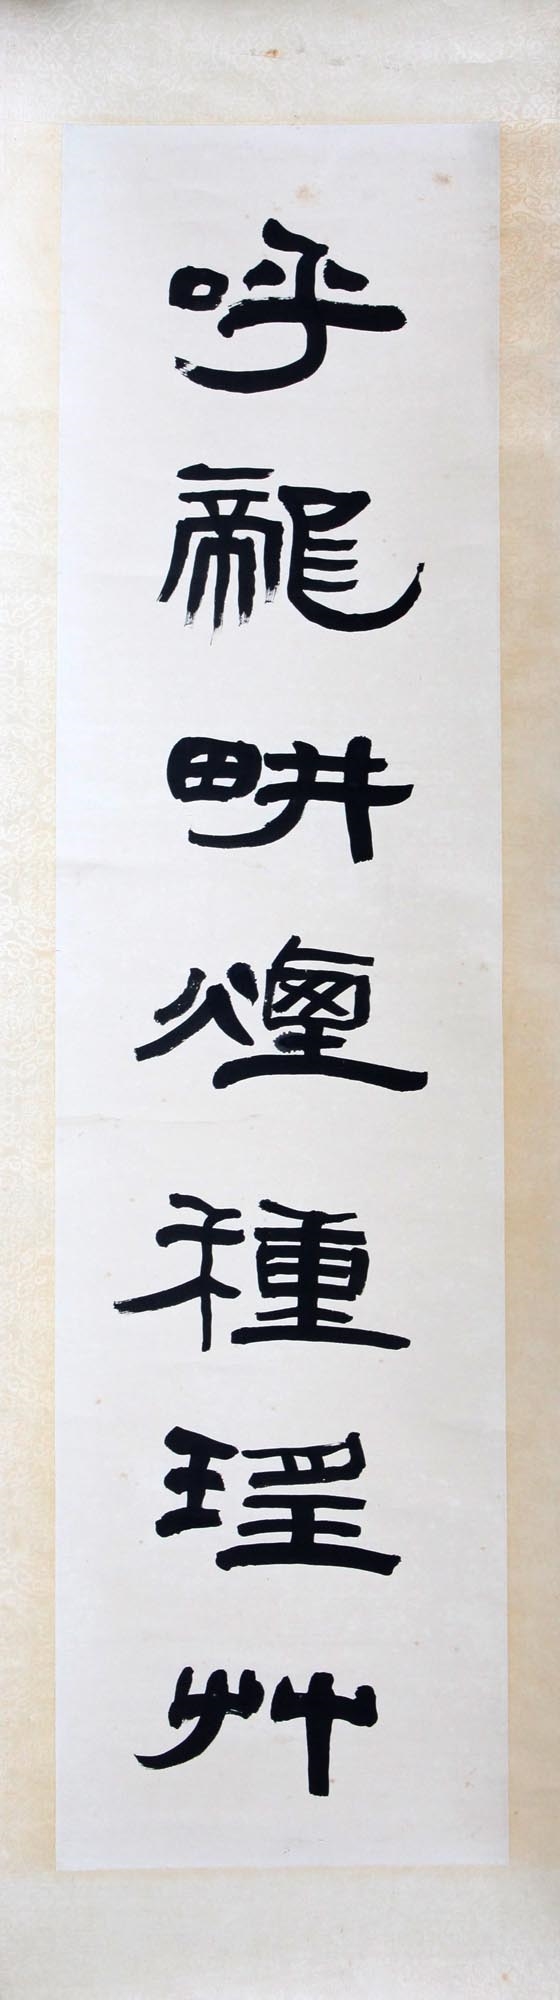 呼龍畊煙種瑤艸